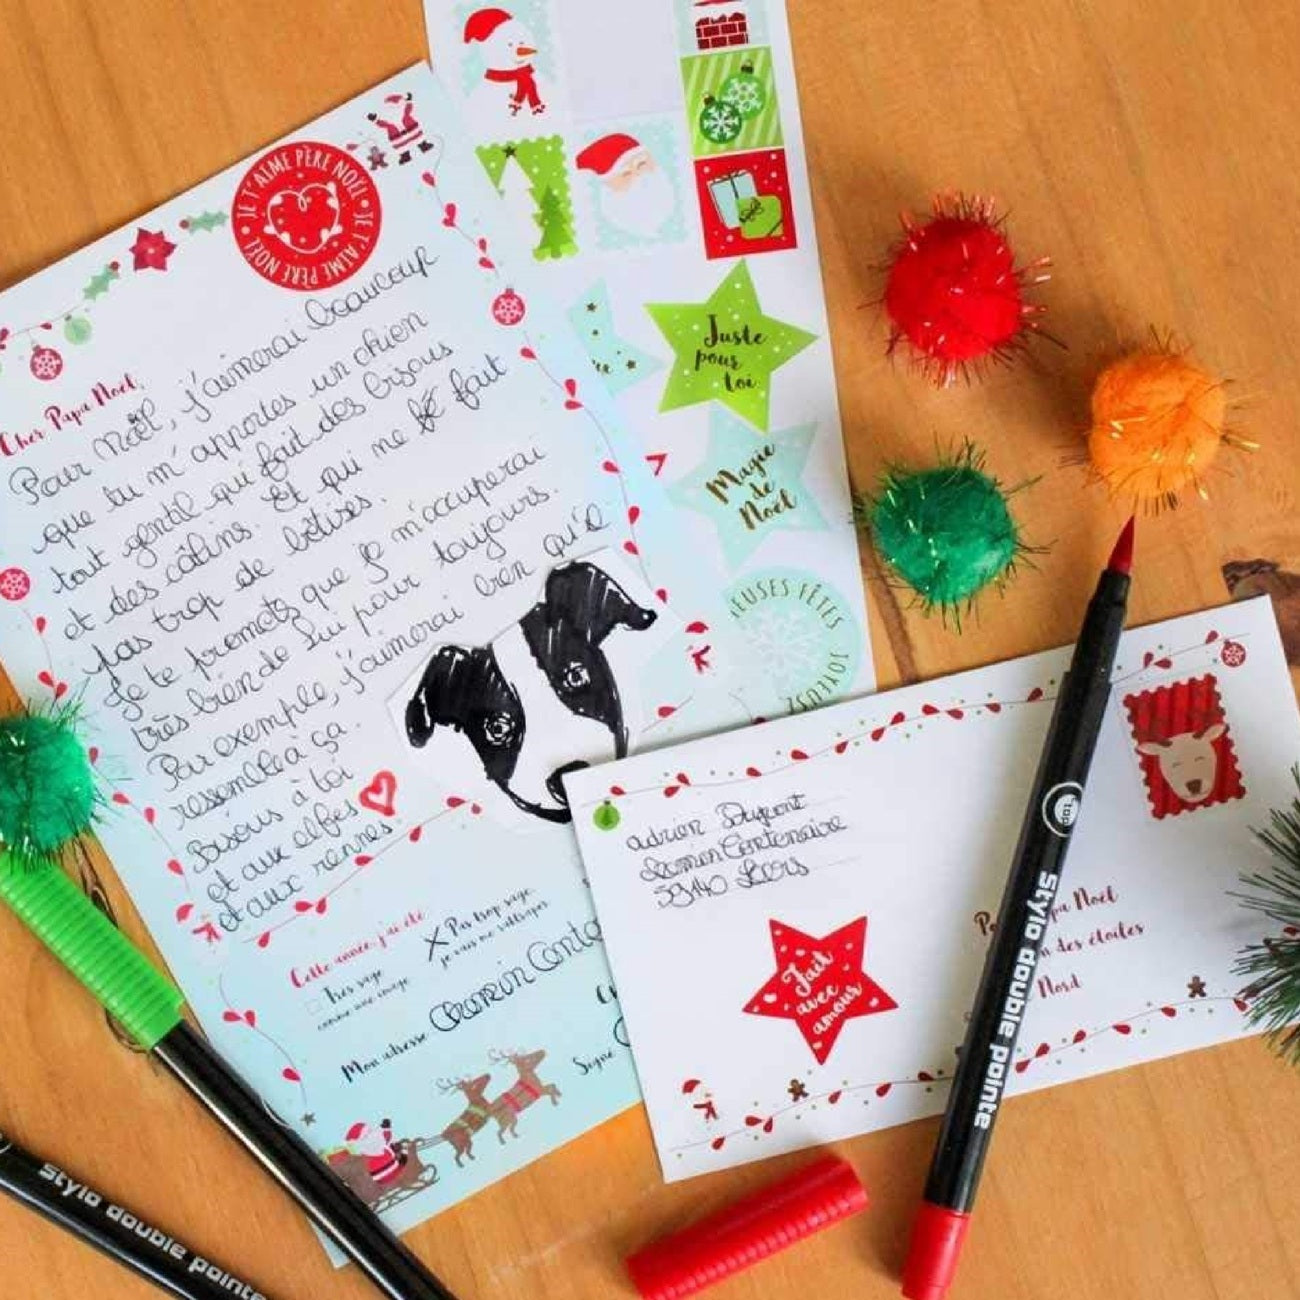 JE T'AIME PÈRE NOËL • JE T'AIME PÈRE NOËL •
Cher Papa Noël,
Pour Noël, j'aimerai beaucoup
que tu m'apportes un chien
tout gentil qui fait des bisous
et des câlins. Et qui ne fait
pas trop de bêtises.
Je te promets que je m'occuperai
très bien de lui pour toujours.
Par exemple, j'aimerai bien qu'il
ressemble à ça.
Bisous à toi
et aux elfes
et aux rennes
Cette année, j'ai été
Très sage
comme une image
X Pas trop sage,
je vais me rattraper
Mon adresse Chemin Conte
Signé
Juste
pour
toi
Magie
de
Noël
EUSES FÊTES
JOYEUSE
Adrien Dupont
Chemin Contenaire
59140 Leers
Fait
avec
amour
pa Noël
des étoiles
Nord
Stylo double pointe
Stylo double pointe